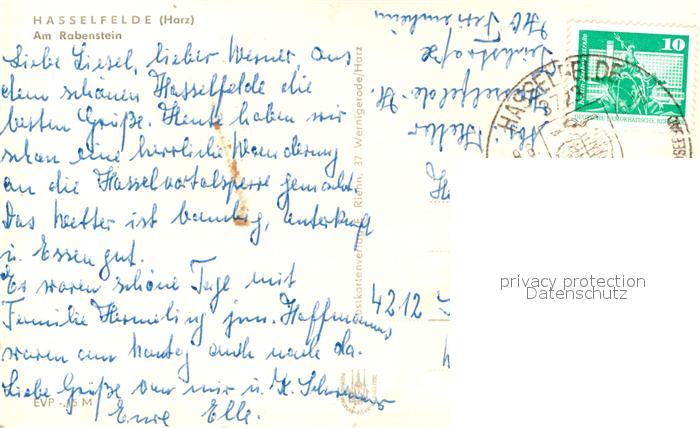 HASSELFELDE (Harz)
Am Rabenstein
Liebe Liesel, lieber Werner, aus
dem schönen Hasselfelde die
besten Grüße. Heute haben wir
schon eine herrliche Wanderung
an die Hasselvortalsperre gemacht.
Das Wetter ist bombig, Unterkunft
u. Essen gut.
Es waren schöne Tage mit
Familie Hermeling jun. Hoffmanns
waren am Montag auch noch da.
Liebe Grüße von mir u. K.
Eure Elle.
EVP -,15 M
Postkartenverlag Riehn, 37 Wernigerode/Harz
Hasselfelde
4212
10
DEUTSCHE DEMOKRATISCHE REP
HASSELFELDE
privacy protection
Datenschutz